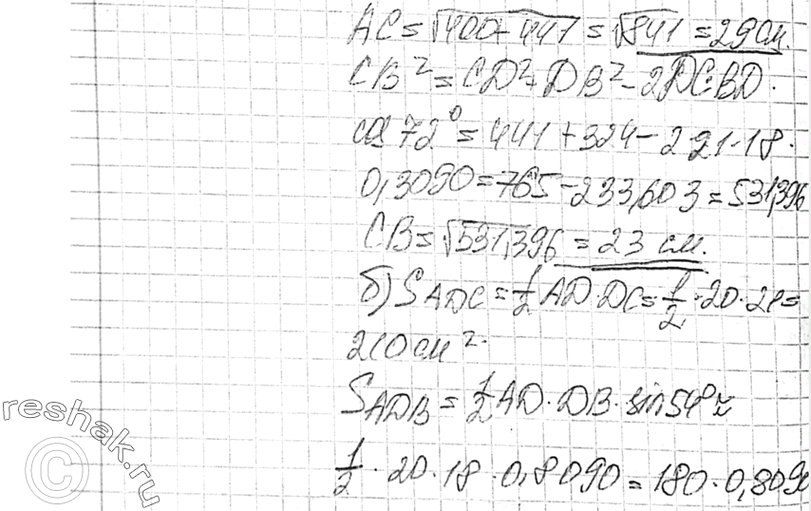 AC = √400+441 = √841 = 29 см.
CB² = CD² + DB² - 2DC·BD·
cos 72° = 441 + 324 - 2·21·18·
0,3090 = 765 - 233,603 = 531,396
CB = √531,396 = 23 см.
б) S ADC = 1/2 AD·DC = 1/2·20·21=
210 см².
S ADB = 1/2 AD·DB·sin 54° ≈
1/2·20·18·0,8090 = 180·0,8090
reshak.ru
©